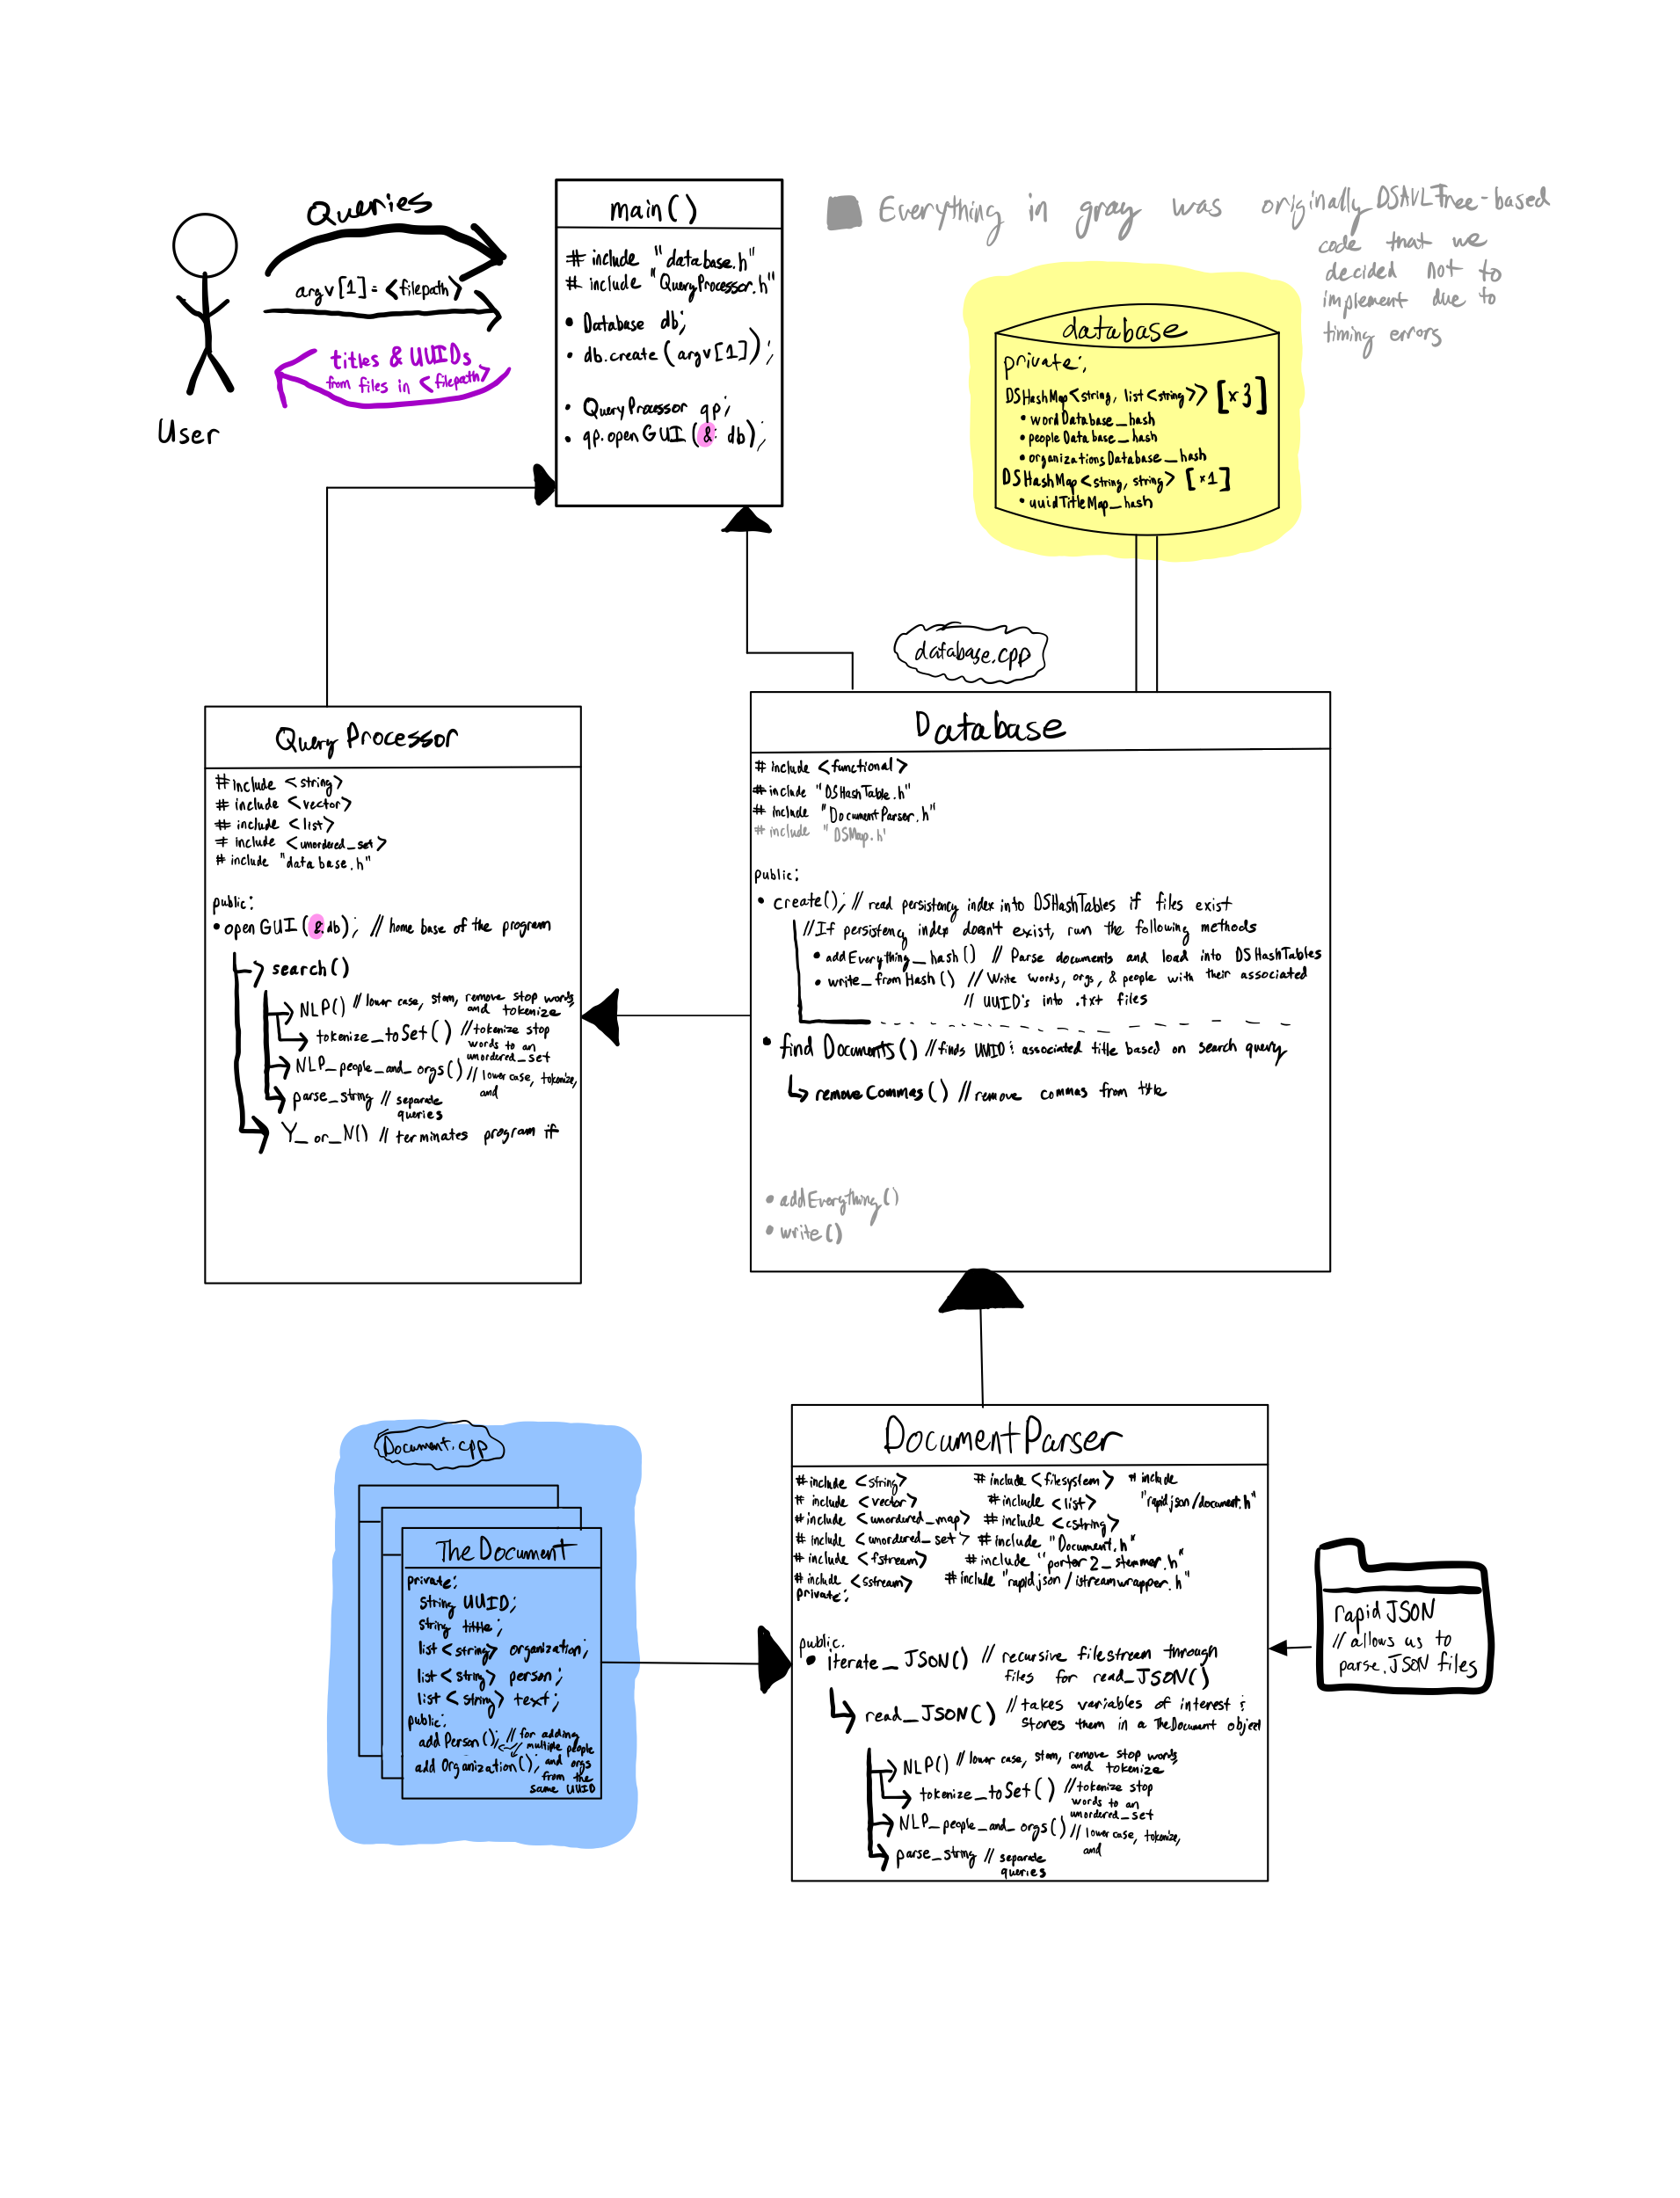 Queries
argv[1] = <filepath>
titles & UUIDs
from files in <filepath>
User
main()
# include "database.h"
# include "QueryProcessor.h"
• Database db;
• db.create(argv[1]);
• QueryProcessor qp;
• qp.openGUI(& db);
Everything in gray was originally DSAVLTree-based
code that we
decided not to
implement due to
timing errors
database
private:
DSHashMap<string, list<string>> [x3]
• wordDatabase_hash
• peopleDatabase_hash
• organizationsDatabase_hash
DSHashMap<string, string> [x1]
• uuidTitleMap_hash
database.cpp
Query Processor
# include <string>
# include <vector>
# include <list>
# include <unordered_set>
# include "database.h"
public:
• openGUI(& db); // home base of the program
search()
NLP() // lower case, stem, remove stop words,
and tokenize
tokenize_toSet() // tokenize stop
words to an
unordered_set
NLP_people_and_orgs() // lower case, tokenize,
and
parse_string // separate
queries
Y_or_N() // terminates program if
Database
# include <functional>
# include "DSHashTable.h"
# include "DocumentParser.h"
# include "DSMap.h"
public:
• create(); // read persistency index into DSHashTables if files exist
// If persistency index doesn't exist, run the following methods
• addEverything_hash() // Parse documents and load into DSHashTables
• write_fromHash() // Write words, orgs, & people with their associated
// UUID's into .txt files
• findDocuments() // finds UUID & associated title based on search query
removeCommas() // remove commas from title
• addEverything()
• write()
Document.cpp
TheDocument
private:
string UUID;
string tittle;
list<string> organization;
list<string> person;
list<string> text;
public:
addPerson(); // for adding
multiple people
addOrganization(); and orgs
from the
same UUID
DocumentParser
# include <string> # include <filesystem> # include
# include <vector> # include <list> "rapidjson/document.h"
# include <unordered_map> # include <cstring>
# include <unordered_set> # include "Document.h"
# include <fstream> # include "porter2_stemmer.h"
# include <sstream> # include "rapidjson/istreamwrapper.h"
private:
public:
• iterate_JSON() // recursive filestream through
files for read_JSON()
read_JSON() // takes variables of interest &
stores them in a TheDocument object
NLP() // lower case, stem, remove stop words,
and tokenize
tokenize_toSet() // tokenize stop
words to an
unordered_set
NLP_people_and_orgs() // lower case, tokenize,
and
parse_string // separate
queries
rapidJSON
// allows us to
parse .JSON files